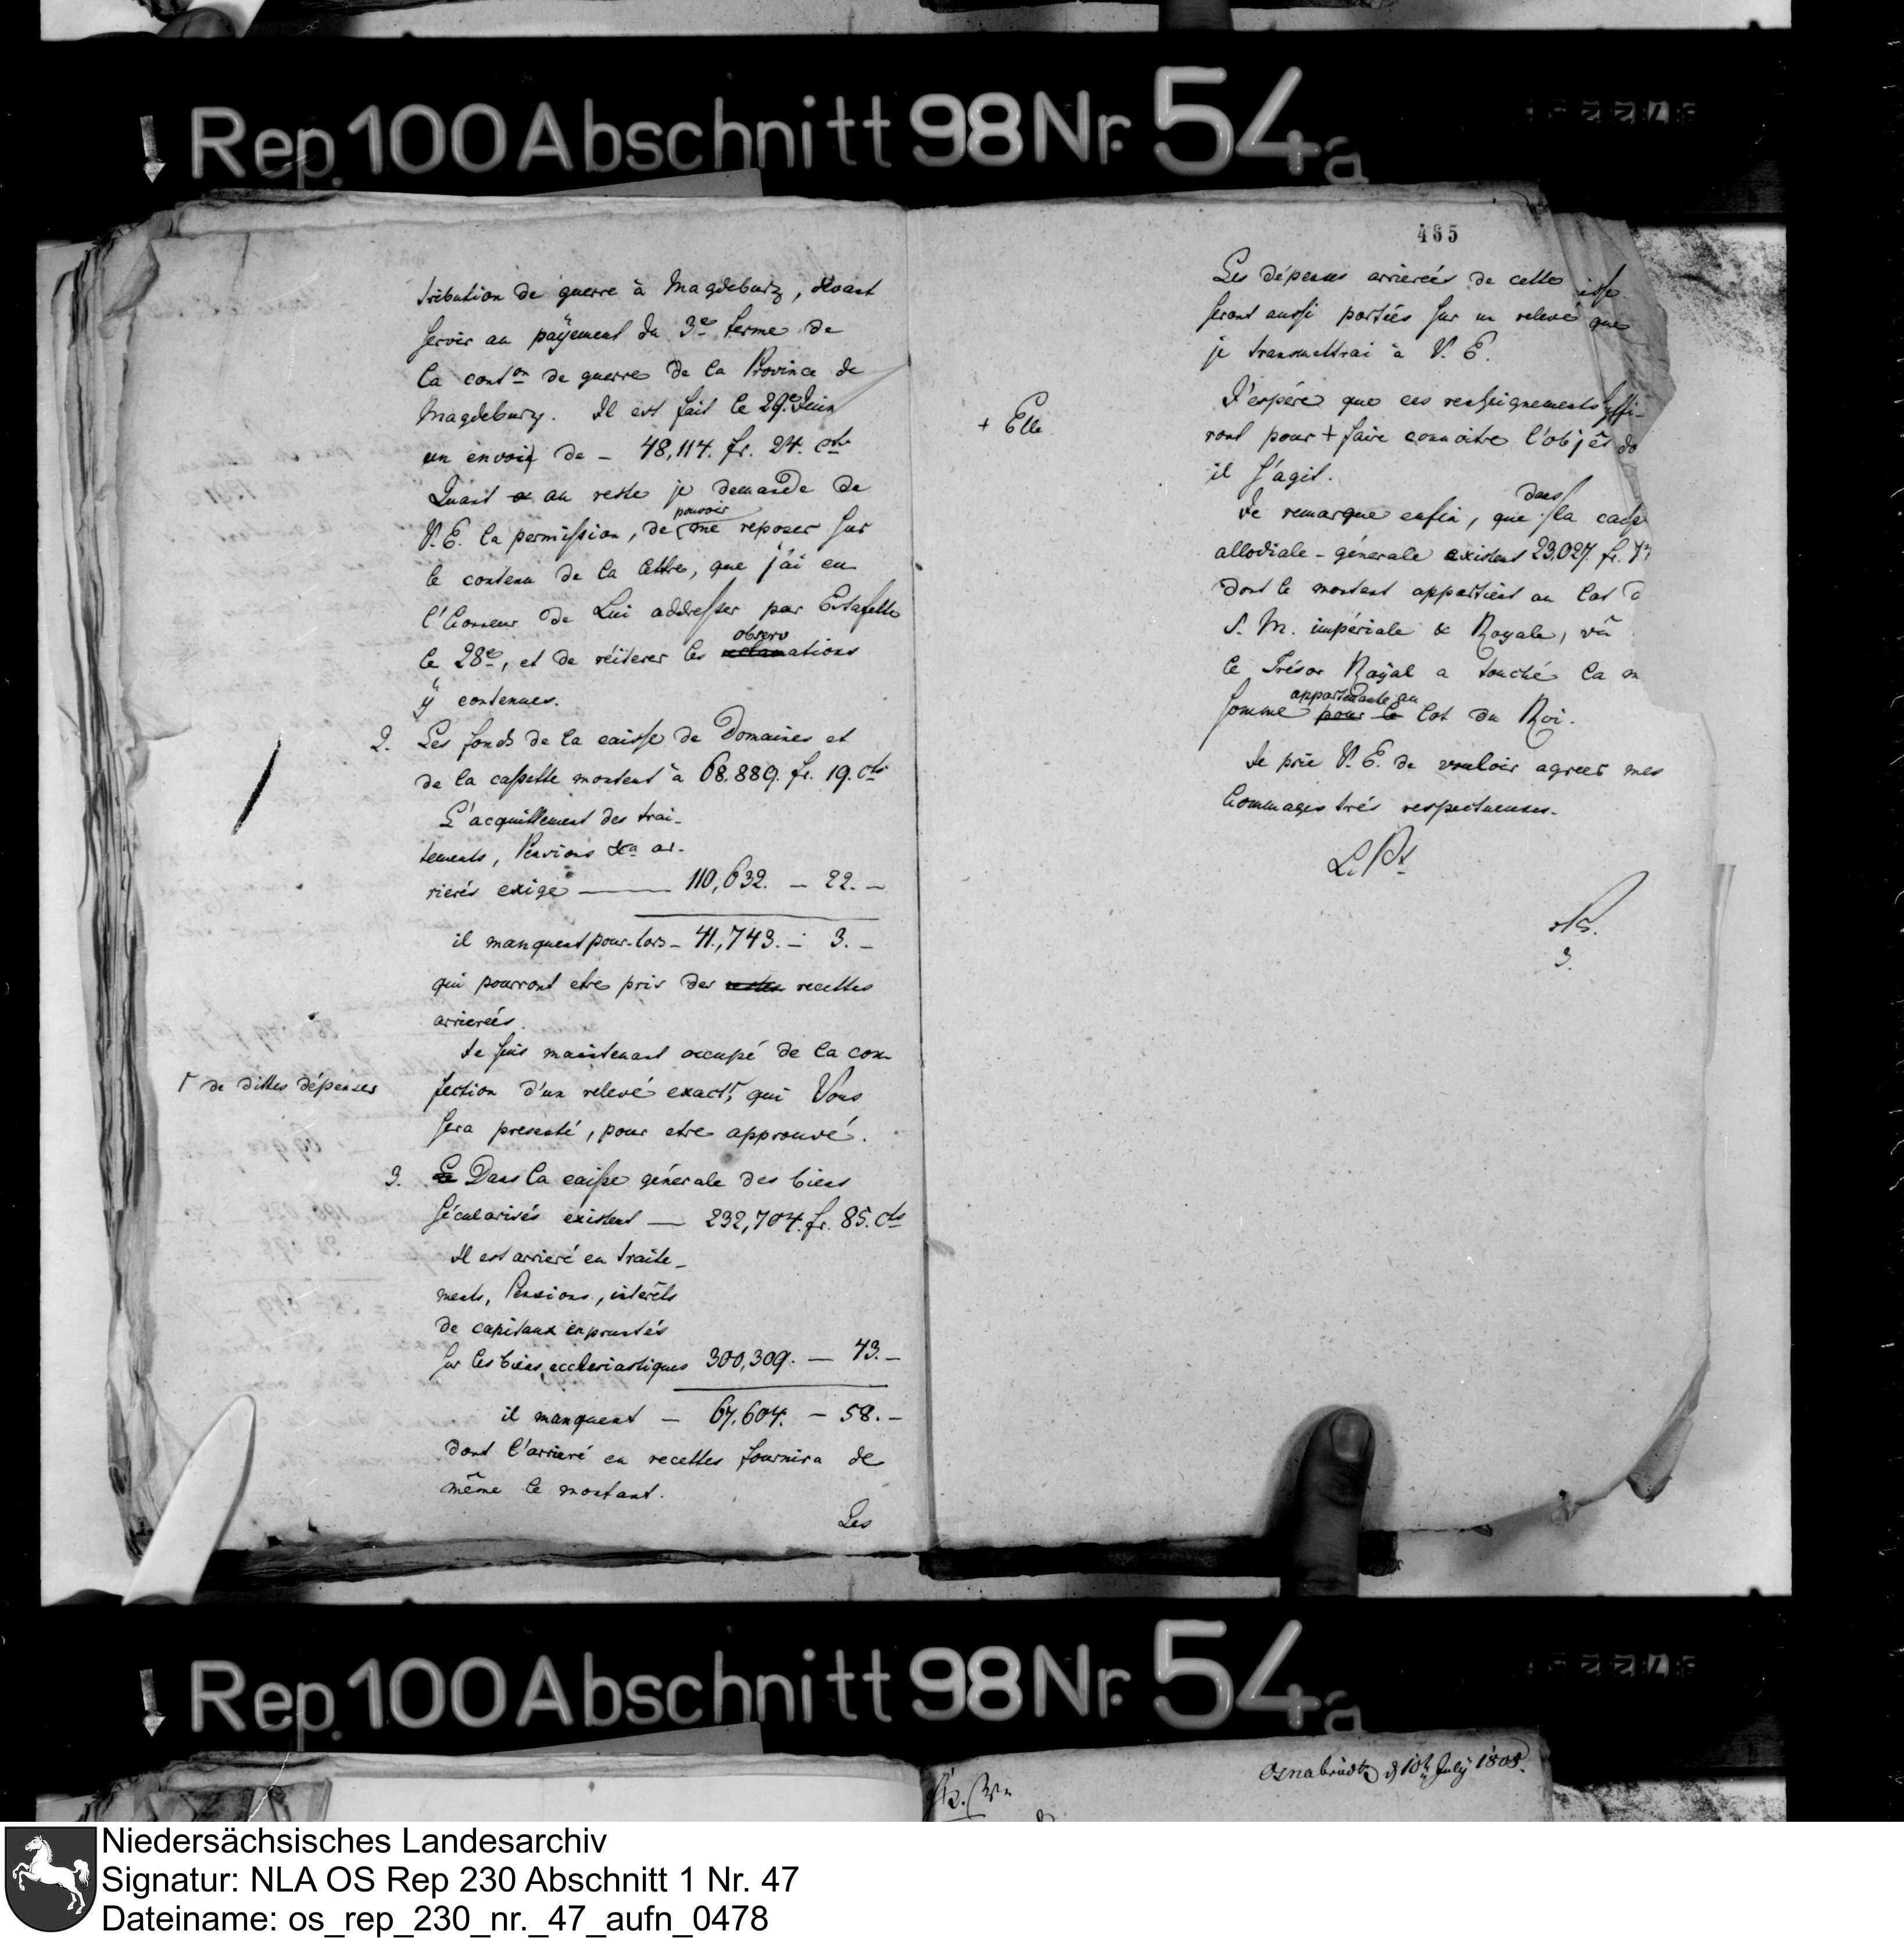 Rep. 100 Abschnitt 98 Nr. 54a
tribution de guerre à Magdeburg, devant
servir au payement du 3e terme de
la conton de guerre de la Province de
Magdeburg. Il est fait le 29e Juin
un envoi de – 48,114. fr. 24. cts
Quant au reste je demande de
pouvoir
V. E. la permission, de me reposer sur
le contenu de la lettre, que j'ai eu
l'honneur de Lui addresser par Estafette
observ
le 28e, et de réiterer les reclamations
ÿ contenues.
2. Les fonds de la caisse de Domaines et
de la cassette montent à 68.889. fr. 19. cts
L'acquittement des trai-
tements, Pensions &ca ar-
rierés exige — 110,632. – 22. –
il manquent pour-lors – 41,743. – 3. –
qui pourront etre pris des restes recettes
arrierées.
Je suis maintenant occupé de la con
Γ de dittes dépenses
fection d'un relevé exact Γ, qui Vous
sera presenté, pour etre approuvé.
3. Le Dans la caisse générale des biens
sécularisés existent — 232,704. fr. 85. cts
Il est arrieré en traite-
ments, Pensions, intérêts
de capitaux enpruntés
sur les biens ecclesiastiques 300,309. — 43. –
il manquent – 67,604. – 58. –
dont l'arrieré en recettes fournira de
même le montant.
Les
465
Les dépenses arrierées de cette isse
seront aussi portées sur un relevé que
je transmettrai à V. E.
J'espère que ces renseignements suffi-
+ Elle
ront pour + faire connoitre l'objêt do
il s'agit.
dans
Je remarque enfin, que la caisse
allodiale-générale existent 23.027. fr.
dont le montant appartient au lot d
S. M. impériale & Royale, vû
le Trésor Royal a touché la m
appartenante au
somme pour le lot du Roi.
Je prie V. E. de vouloir agreer mes
hommages très respectueuses.
L. Pt
3.
Rep. 100 Abschnitt 98 Nr. 54a
Osnabrück d 10t July 1808.
Niedersächsisches Landesarchiv
Signatur: NLA OS Rep 230 Abschnitt 1 Nr. 47
Dateiname: os_rep_230_nr._47_aufn_0478